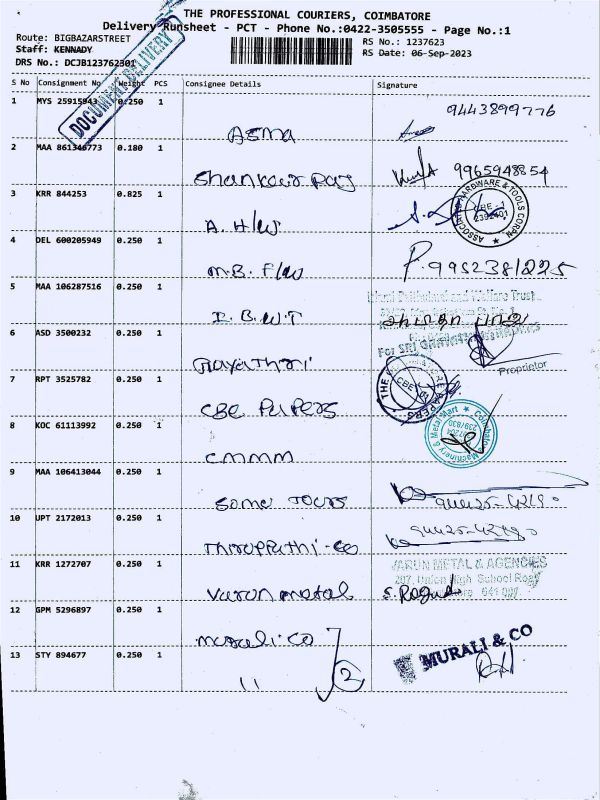 THE PROFESSIONAL COURIERS, COIMBATORE
Delivery Runsheet - PCT - Phone No.:0422-3505555 - Page No.:1
Route: BIGBAZARSTREET
Staff: KENNADY
DRS No.: DCJB123762301
RS No.: 1237623
RS Date: 06-Sep-2023
DOCUMENT DELIVERY
S No Consignment No Weight PCS Consignee Details Signature
1 MYS 25915943 0.250 1 ASMA 9443899776
2 MAA 861346773 0.180 1 Shankar Raj 9965948854
3 KRR 844253 0.825 1 A. H/W
ASSOCIATED HARDWARE & TOOLS CORPN
CBE - 1
2392401
4 DEL 600205949 0.250 1 M.B. F/W P. 9952381225
5 MAA 106287516 0.250 1 I. B. W. T
and Welfare Trust
6 ASD 3500232 0.250 1 Gayathri
For SRI
Proprietor
7 RPT 3525782 0.250 1 CBE PAPERS
THE PAPERS
CBE
8 KOC 61113992 0.250 1 CMMM
Coimbatore Machinery & Metal Mart
9 MAA 106413044 0.250 1 Some Tours
10 UPT 2172013 0.250 1 Thiruppathi-Co
11 KRR 1272707 0.250 1 Varun metal S. Ragu
VARUN METAL & AGENCIES
207, Union High School Road
641 001
12 GPM 5296897 0.250 1 Murali.Co
MURALI & CO
13 STY 894677 0.250 1 " 2